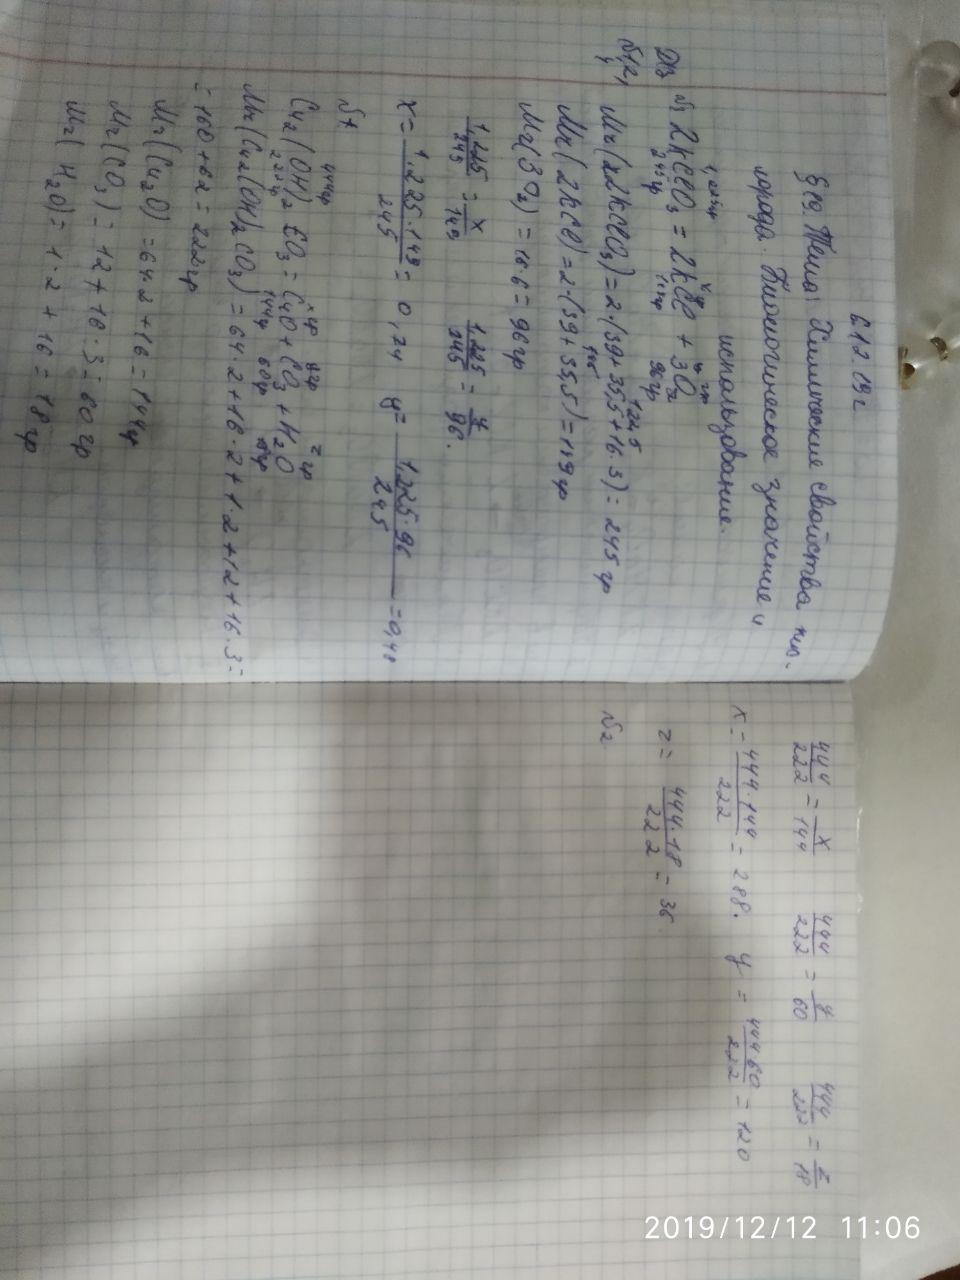 6.12.19г
§19. Тема: Химические свойства кис-
лорода. Биологическое значение и
использование.
Дз
№1,2,
4
№1
1,225гр x гр y гр
2KClO₃ = 2KCl + 3O₂
245гр 149гр 96гр
Mr(2KClO₃)=2·(39+35,5+16·3)=245 гр
Mr(2KCl)=2·(39+35,5)=149гр
Mr(3O₂)=16·6=96гр
1,225/245 = x/149 1,225/245 = y/96.
x= 1,225·149/245 = 0,74 y= 1,225·96/245 =0,48
№4
444гр x гр y гр z гр
Cu₂(OH)₂CO₃=CuO+CO₃+H₂O
222гр 144гр 60гр 18гр
Mr(Cu₂(OH)₂CO₃)=64·2+16·2+1·2+12+16·3=
=160+62=222гр
Mr(Cu₂O)=64·2+16=144гр
Mr(CO₃)=12+16·3=60гр
Mr(H₂O)=1·2+16=18гр
444/222 = x/144 444/222 = y/60 444/222 = z/18
x= 444·144/222 = 288. y= 444·60/222 =120
z= 444·18/222 =36
№2
2019/12/12 11:06